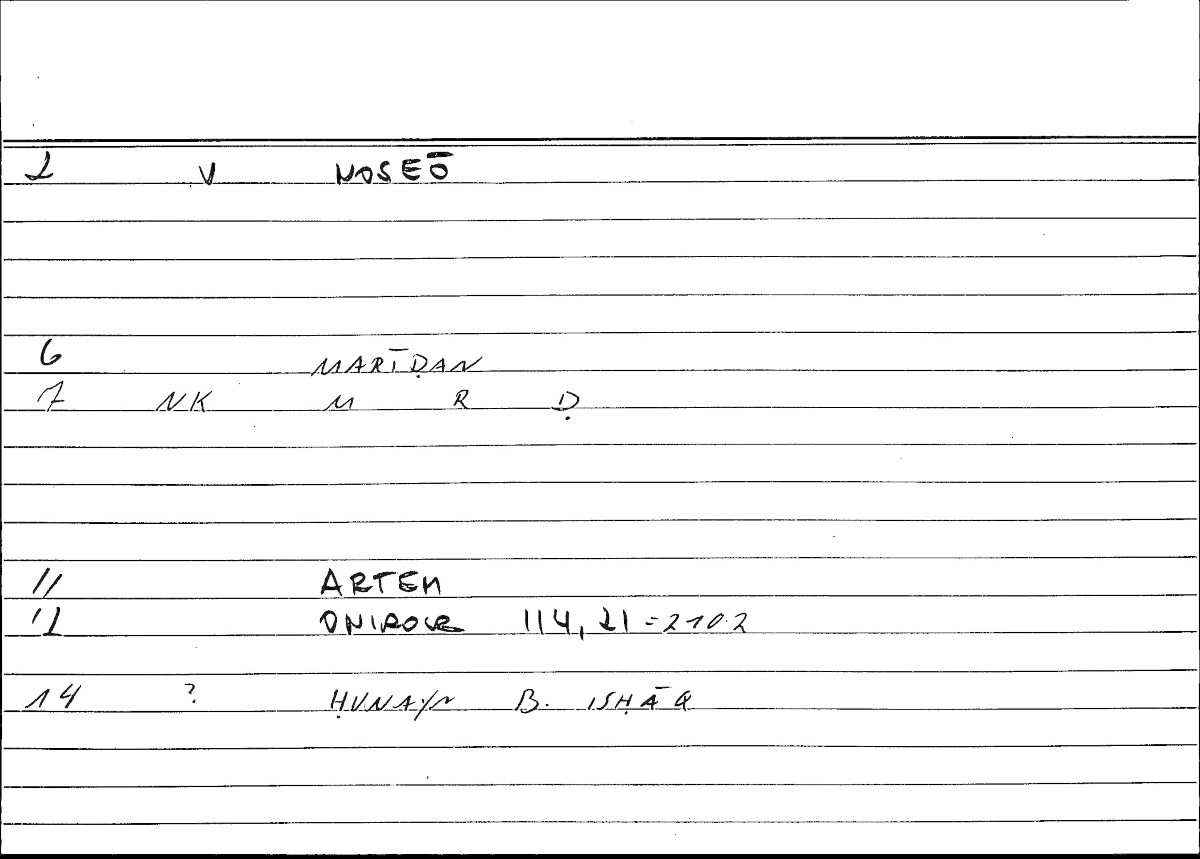 2 V NOSEŌ
6 MARĪḌAN
7 NK M R Ḍ
11 ARTEM
12 ONIROCR 114, 21 = 210.2
14 ? ḤUNAYN B. ISḤĀQ